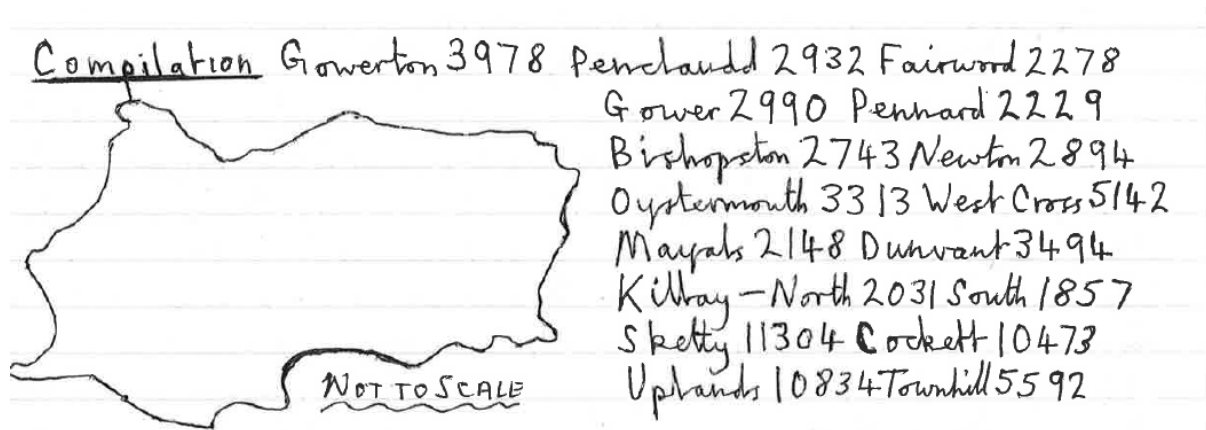 Compilation Gowerton 3978 Penclaudd 2932 Fairwood 2278
Gower 2990 Pennard 2229
Bishopston 2743 Newton 2894
Oystermouth 3313 West Cross 5142
Mayals 2148 Dunvant 3494
Killay - North 2031 South 1857
Sketty 11304 Cockett 10473
Uplands 10834 Townhill 5592
NOT TO SCALE